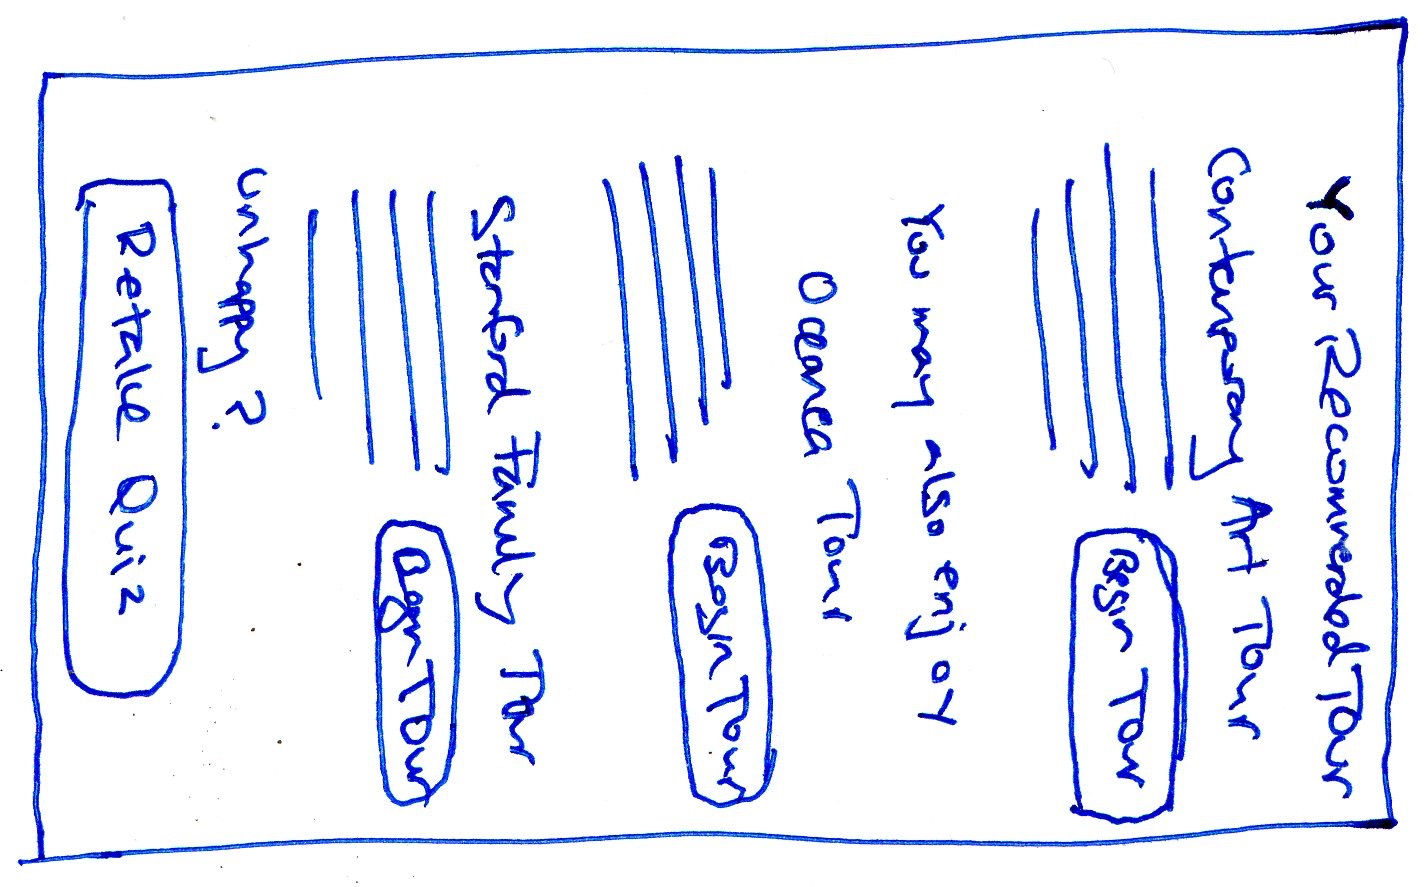 Your Recommended Tour
Contemporary Art Tour
Begin Tour
You may also enjoy
Oceanea Tour
Begin Tour
Stanford Family Tour
Begin Tour
Unhappy?
Retake Quiz